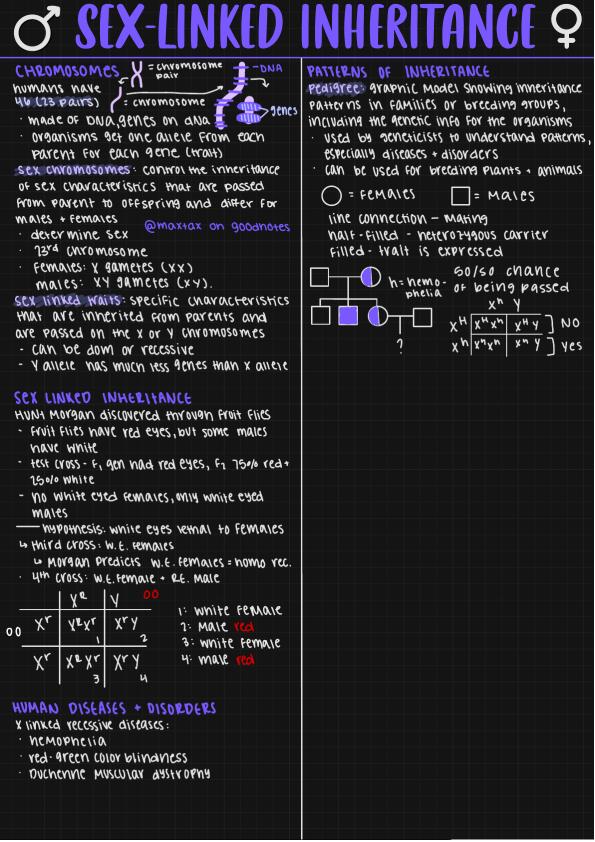 SEX-LINKED INHERITANCE
CHROMOSOMES
= chromosome pair
-DNA
humans have
46 (23 pairs)
= chromosome
genes
· made of DNA, genes on DNA
· organisms get one allele from each
parent for each gene (trait)
sex chromosomes: control the inheritance
of sex characteristics that are passed
from parent to offspring and differ for
males + females
@maxtax on goodnotes
· determine sex
· 23rd chromosome
· females: X gametes (XX)
males: XY gametes (XY).
sex linked traits: specific characteristics
that are inherited from parents and
are passed on the X or Y chromosomes
- can be dom or recessive
- Y allele has much less genes than X allele
SEX LINKED INHERITANCE
HUNT Morgan discovered through fruit flies
- fruit flies have red eyes, but some males
have white
- test cross - F1 gen had red eyes, F2 75% red +
25% white
- no white eyed females, only white eyed
males
hypothesis: white eyes lethal to females
↳ third cross: W.E. females
↳ Morgan predicts W.E. females = homo rec.
· 4th cross: W.E. female + R.E. male
X^R Y
X^r X^R X^r 1 X^r Y 2
X^r X^R X^r 3 X^r Y 4
1: white female
2: male red
3: white female
4: male red
HUMAN DISEASES + DISORDERS
X linked recessive diseases:
· hemophelia
· red-green color blindness
· Duchenne muscular dystrophy
PATTERNS OF INHERITANCE
Pedigree: graphic model showing inheritance
patterns in families or breeding groups,
including the genetic info for the organisms
· used by geneticists to understand patterns,
especially diseases + disorders
· can be used for breeding plants + animals
= females = males
line connection - mating
half-filled - heterozygous carrier
filled - trait is expressed
h = hemo-
phelia
50/50 chance
of being passed
?
X^h Y
X^H X^H X^h X^H Y NO
X^h X^h X^h X^h Y yes